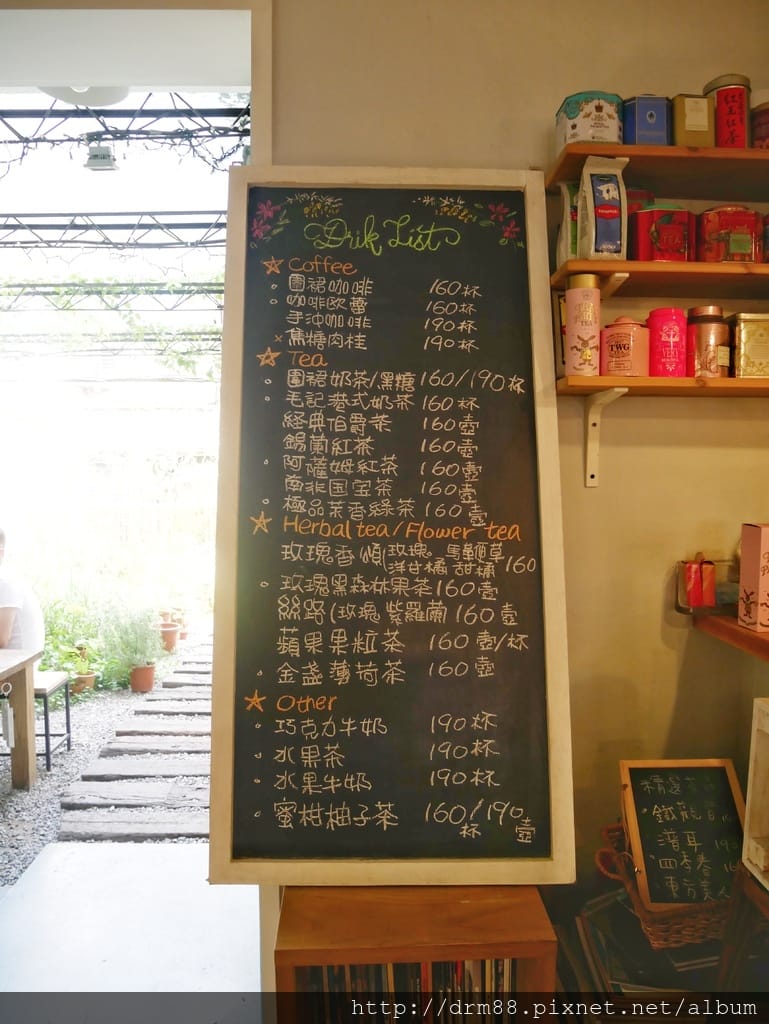 Drik List
Coffee
圍裙咖啡 160杯
咖啡歐蕾 160杯
手沖咖啡 190杯
焦糖肉桂 190杯
Tea
圍裙奶茶/黑糖 160/190杯
毛記港式奶茶 160杯
經典伯爵茶 160壺
錫蘭紅茶 160壺
阿薩姆紅茶 160壺
南非国宝茶 160壺
極品茉香綠茶 160壺
Herbal tea/Flower tea
玫瑰香頌(玫瑰。馬鞭草
洋甘橘 甜橘 160
玫瑰黑森林果茶 160壺
絲路(玫瑰 紫羅蘭) 160壺
蘋果果粒茶 160壺/杯
金盞薄荷茶 160壺
Other
巧克力牛奶 190杯
水果茶 190杯
水果牛奶 190杯
蜜柑柚子茶 160/190
杯 壺
紅玉紅茶
TWG
TEA
VERY
精選
鐵觀音
普耳 190
四季春 16
東方美人
http://drm88.pixnet.net/album